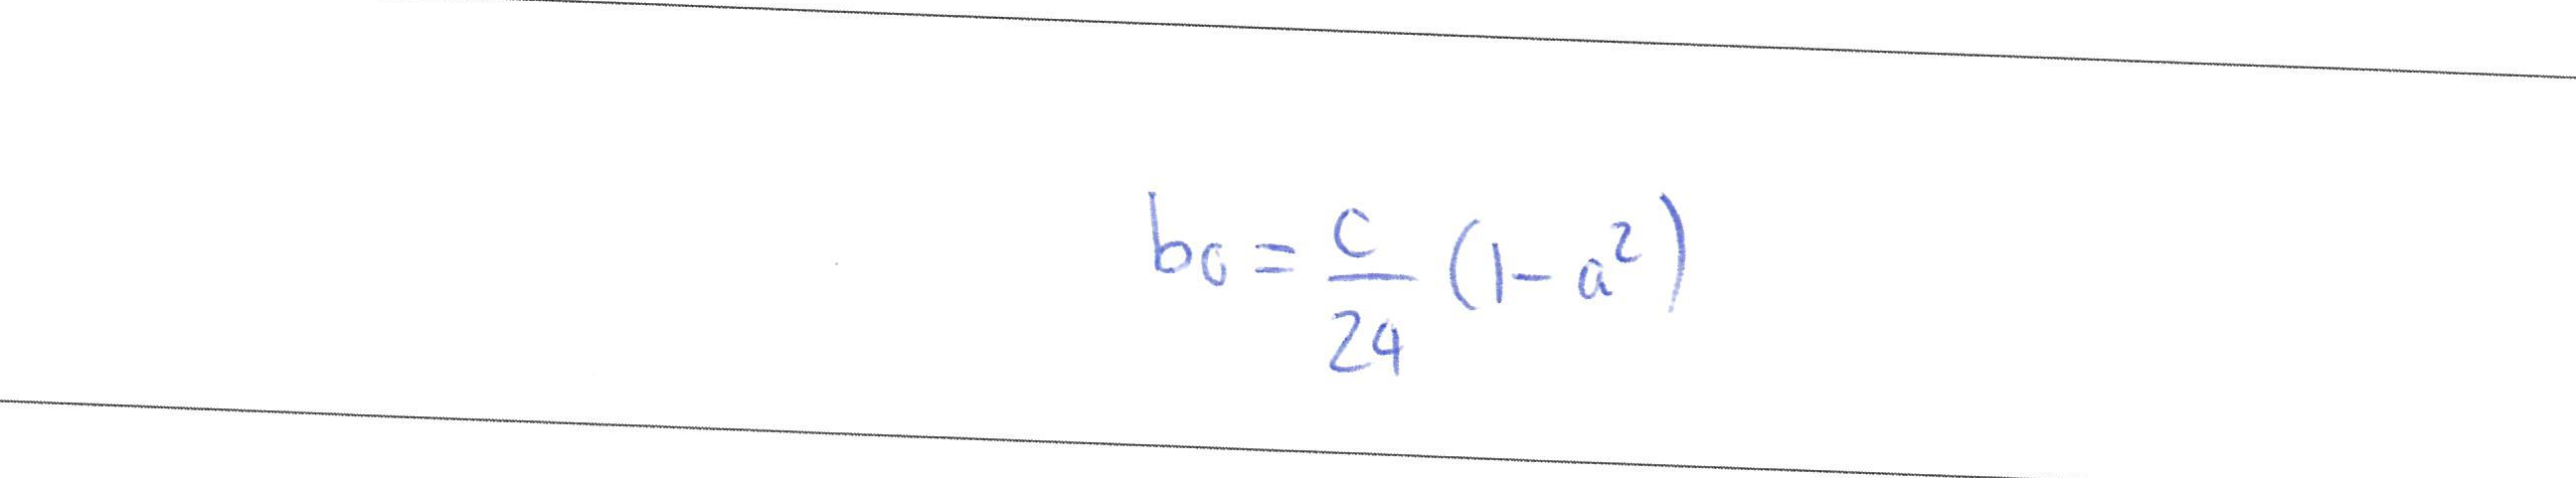 b_0 = \frac{c}{24} (1 - a^2)